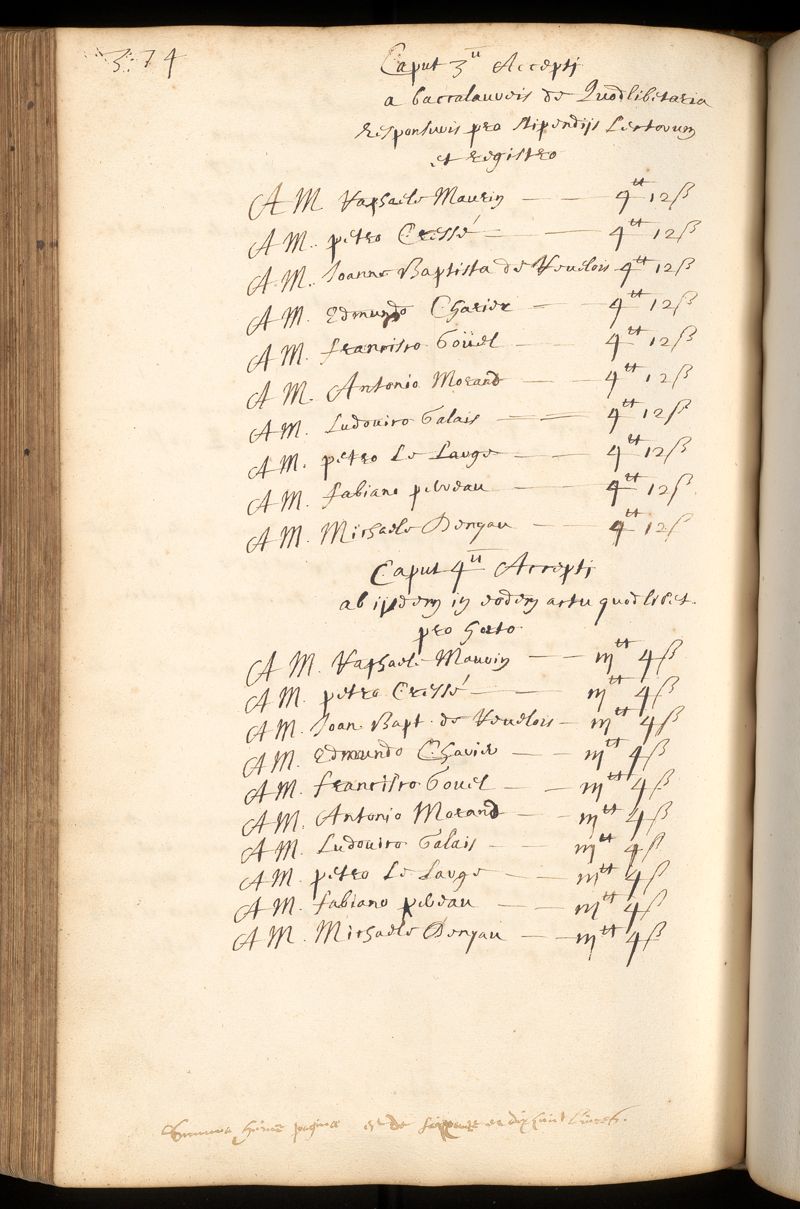 374
Caput 3ᵘ Accepti
a baccalaureis de Quodlibetaria
responsuris pro stipendijs Lectorum
et registro
A M. Raphaele Maurin — 4ᵗᵗ 12 ß
A M. petro Cressé — 4ᵗᵗ 12 ß
A M. Joanne Baptista de Revelois 4ᵗᵗ 12 ß
A M. Edmundo Charier — 4ᵗᵗ 12 ß
A M. francisco Goüel — 4ᵗᵗ 12 ß
A M. Antonio Morand — 4ᵗᵗ 12 ß
A M. Ludovico Galais — 4ᵗᵗ 12 ß
A M. petro Le Large — 4ᵗᵗ 12 ß
A M. fabiano perreau — 4ᵗᵗ 12 ß
A M. Michaele Denyau — 4ᵗᵗ 12 ß
Caput 4ᵘ Accepti
ab ijsdem in eodem actu quodlibet.
pro horto
A M. Raphaele Maurin — iiiᵗᵗ 4 ß
A M. petro Cressé — iiiᵗᵗ 4 ß
A M. Joan. Bapt. de Revelois — iiiᵗᵗ 4 ß
A M. Edmundo Charier — iiiᵗᵗ 4 ß
A M. francisco Gouel — iiiᵗᵗ 4 ß
A M. Antonio Morand — iiiᵗᵗ 4 ß
A M. Ludovico Galais — iiiᵗᵗ 4 ß
A M. petro Le Large — iiiᵗᵗ 4 ß
A M. fabiano perreau — iiiᵗᵗ 4 ß
A M. Michaele Denyau — iiiᵗᵗ 4 ß
Summa huius paginæ est de soixante et dixhuit livres.